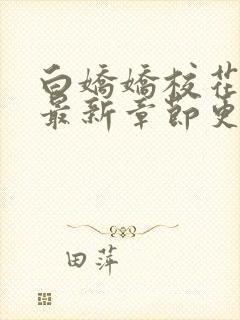 白嬌嬌校花
最新章節更
田萍